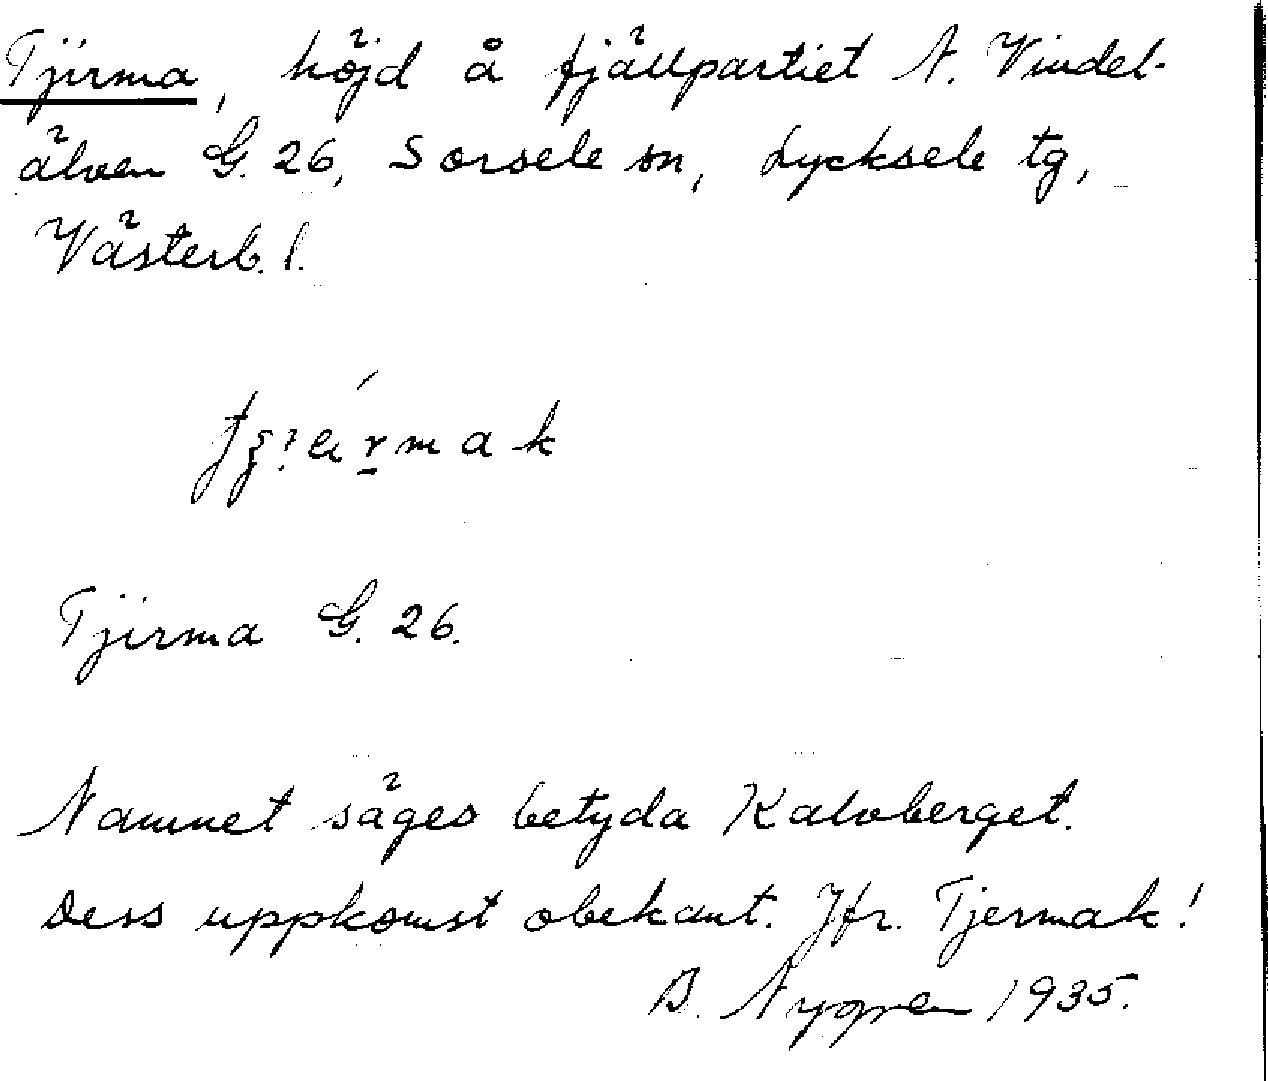 Tjirma, höjd å fjällpartiet N. Vindel-
älven G. 26, Sorsele sn, Lycksele tg,
Västerb. l.
Tjirma G. 26.
Namnet säges betyda Kalvberget.
Dess uppkomst obekant. Jfr. Tjermak!
B. Nygren 1935.